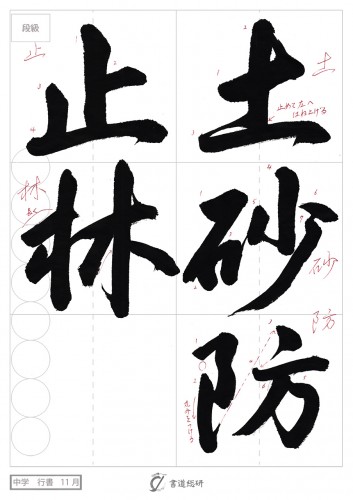 段級
土砂防
止林
土
止めて左へ
はね上げる
砂
防
止
林
中学 行書 11月
書道総研